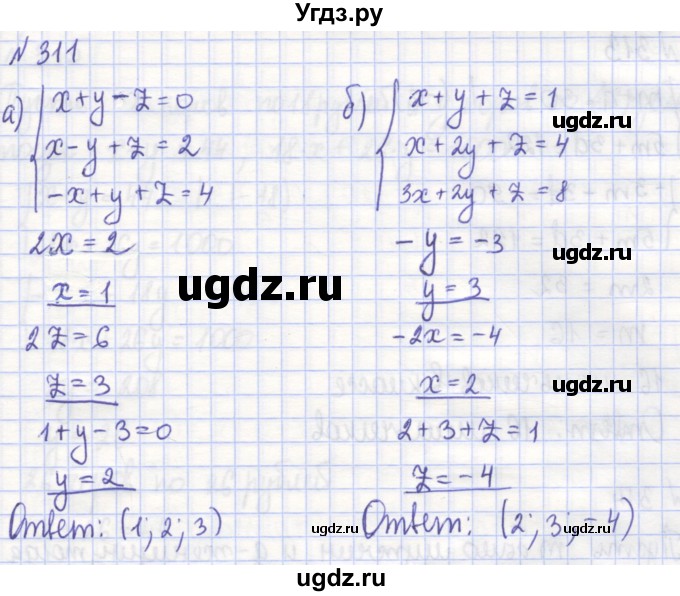 Угдз.ру
№ 311
а) { x+y−z=0
x−y+z=2
−x+y+z=4
2x=2
x=1
2z=6
z=3
1+y−3=0
y=2
Ответ: (1; 2; 3)
б) { x+y+z=1
x+2y+z=4
3x+2y+z=8
−y=−3
y=3
−2x=−4
x=2
2+3+z=1
z=−4
Ответ: (2; 3; −4)
ugdz.ru
ugdz.ru
ugdz.ru
ugdz.ru
ugdz.ru
ugdz.ru
ugdz.ru
ugdz.ru